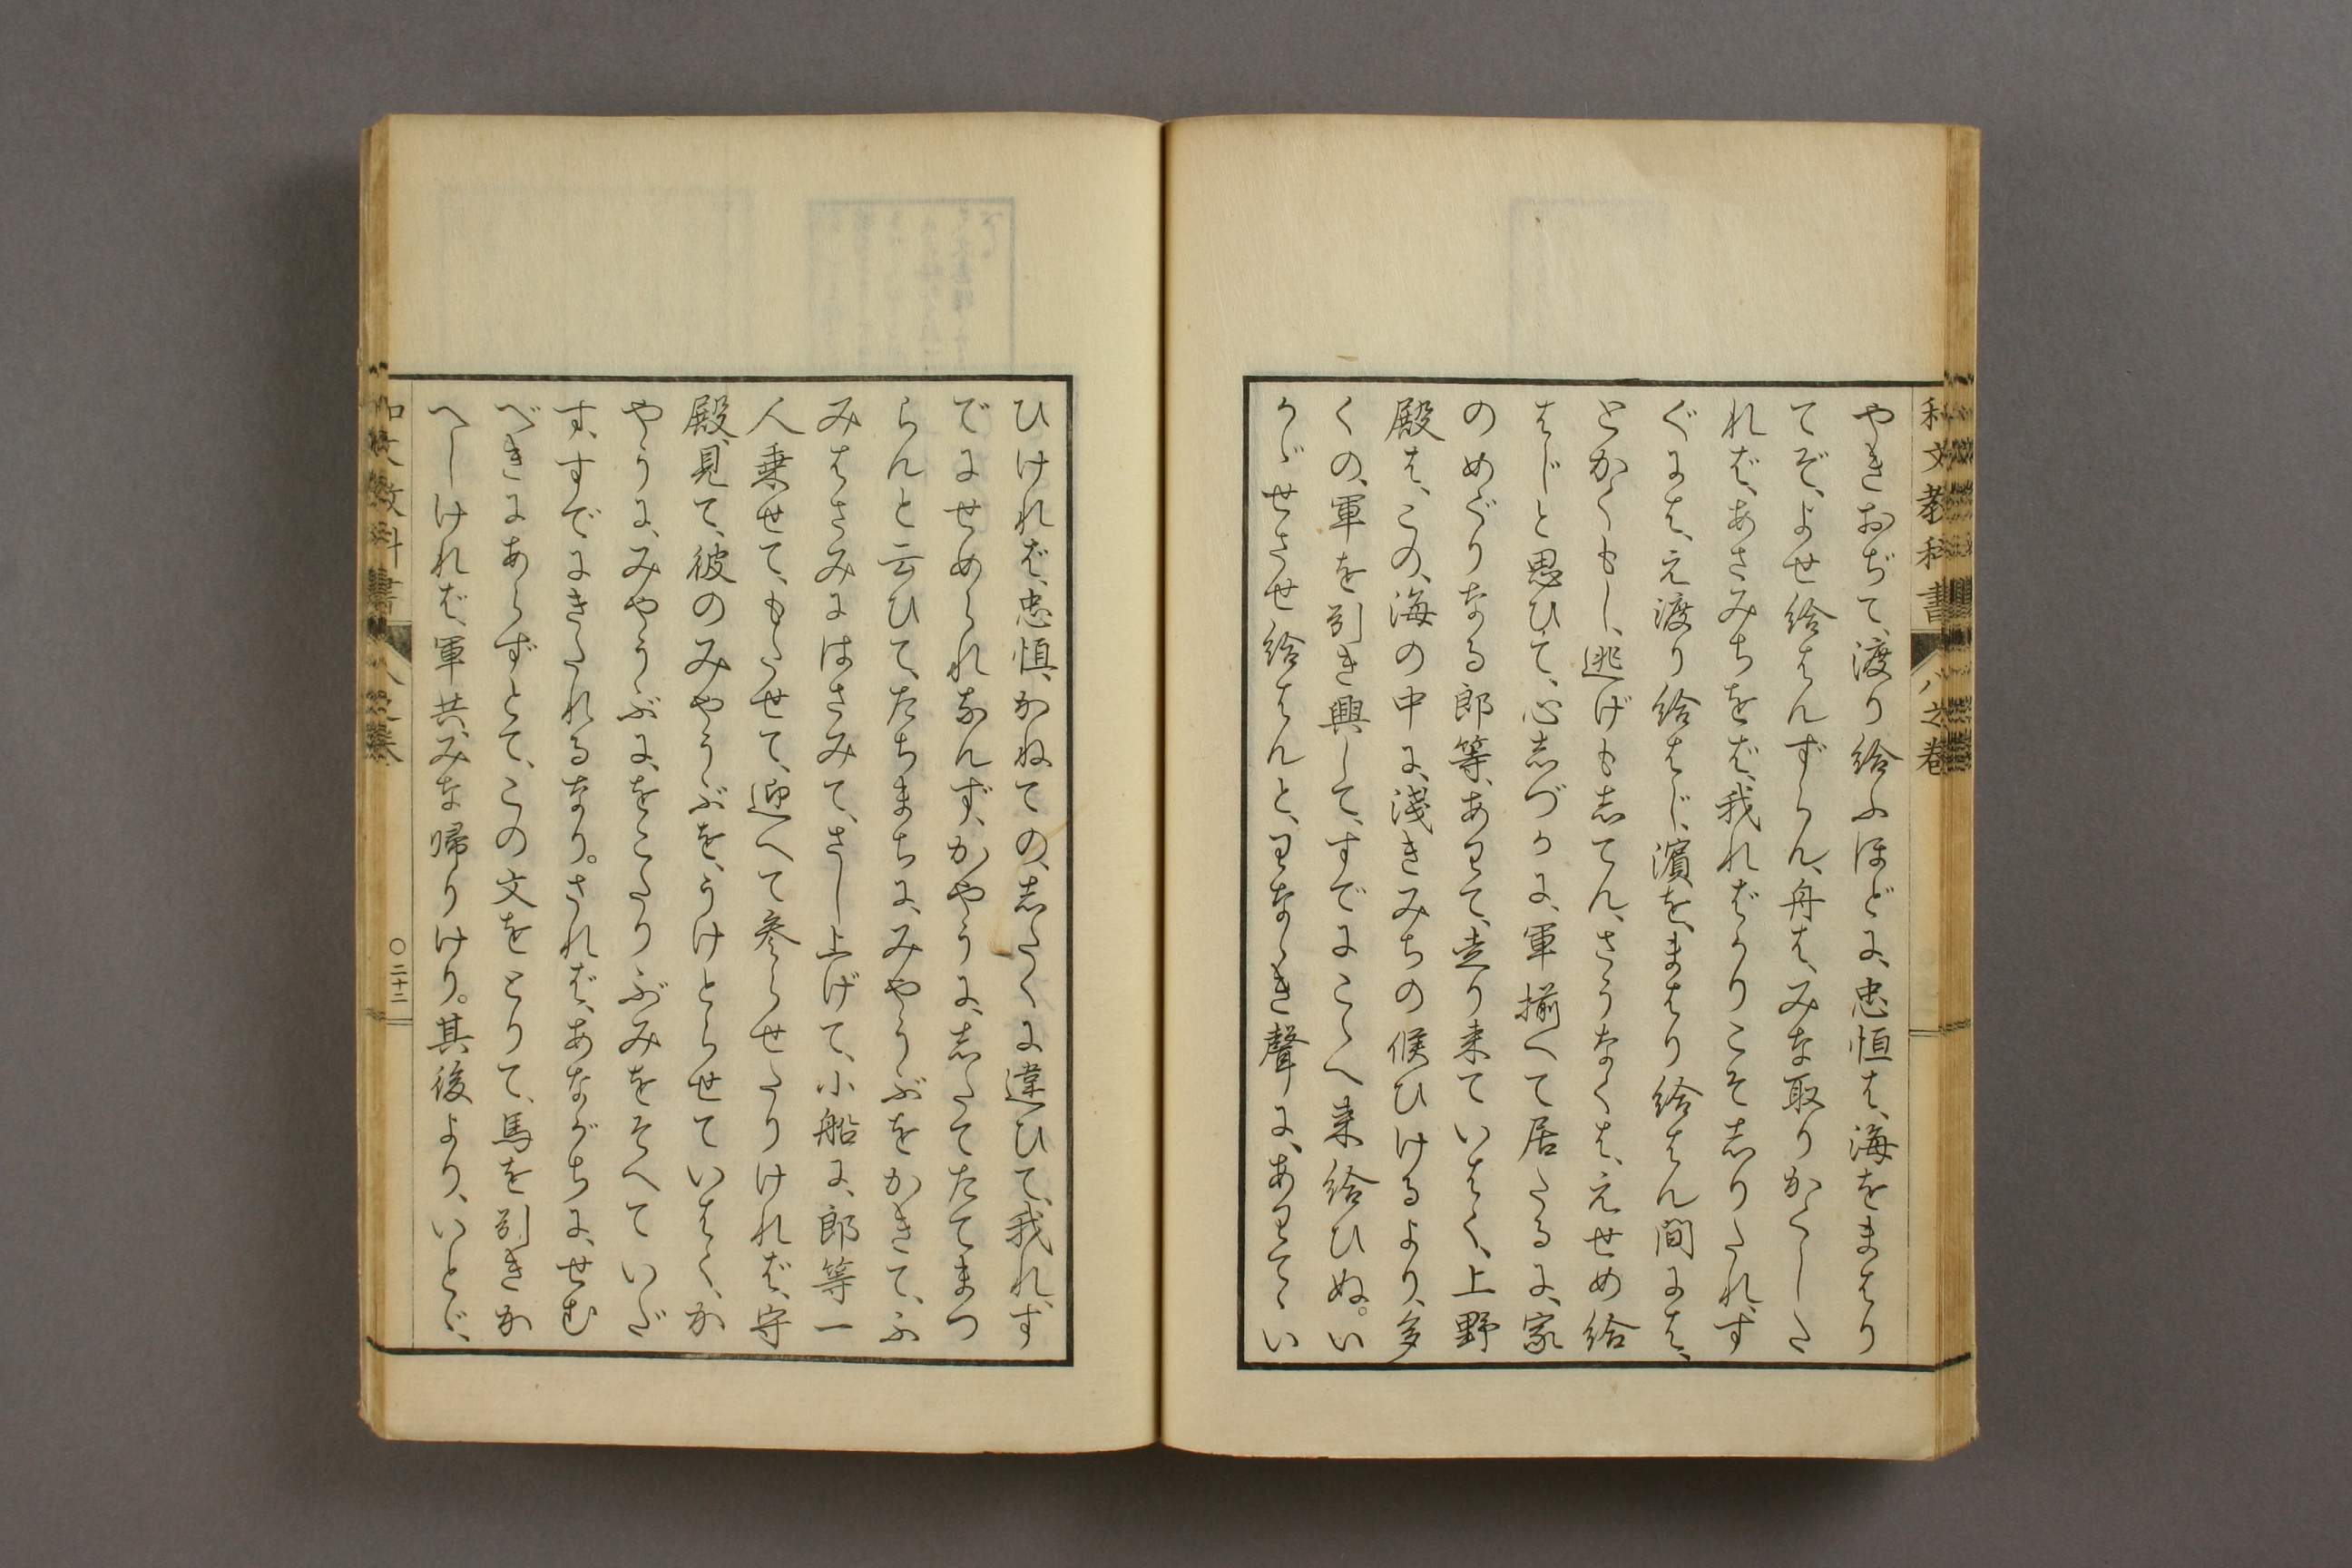 やきおぢて、渡り給ふほどに、忠恒は、海をまはり
てぞ、よせ給はんずらん、舟は、みな取りかくした
れば、あさみちをば、我ればかりこそ志りたれ、す
ぐには、え渡り給はじ、濱を、まはり給はん間には、
とかくもし、逃げも志てん、さうなくは、えせめ給
はじと思ひて、心志づかに、軍揃へて居たるに、家
のめぐりなる郎等、あわて、走り来ていはく、上野
殿は、この、海の中に、淺きみちの候ひけるより、多
くの、軍を引き興して、すでにこゝへ来給ひぬ。い
かゞせさせ給はんと、わなゝき聲に、あわてゝい
ひければ、忠恒、かねての、志たくに違ひて、我れ、す
でにせめられなんず、かやうに、志たてたてまつ
らんと云ひて、たちまちに、みやうぶをかきて、ふ
みはさみにはさみて、さし上げて、小船に、郎等一
人乗せて、もたせて、迎へて参らせたりければ、守
殿、見て、彼のみやうぶを、うけとらせていはく、か
やうに、みやうぶに、をこたりぶみをそへていだ
す、すでにきたれるなり。されば、あながちに、せむ
べきにあらずとて、この文をとりて、馬を引きか
へしければ、軍共、みな帰りけり。其後より、いとゞ、
和文教科書
八之巻
〇二十二
和文教科書
八之巻